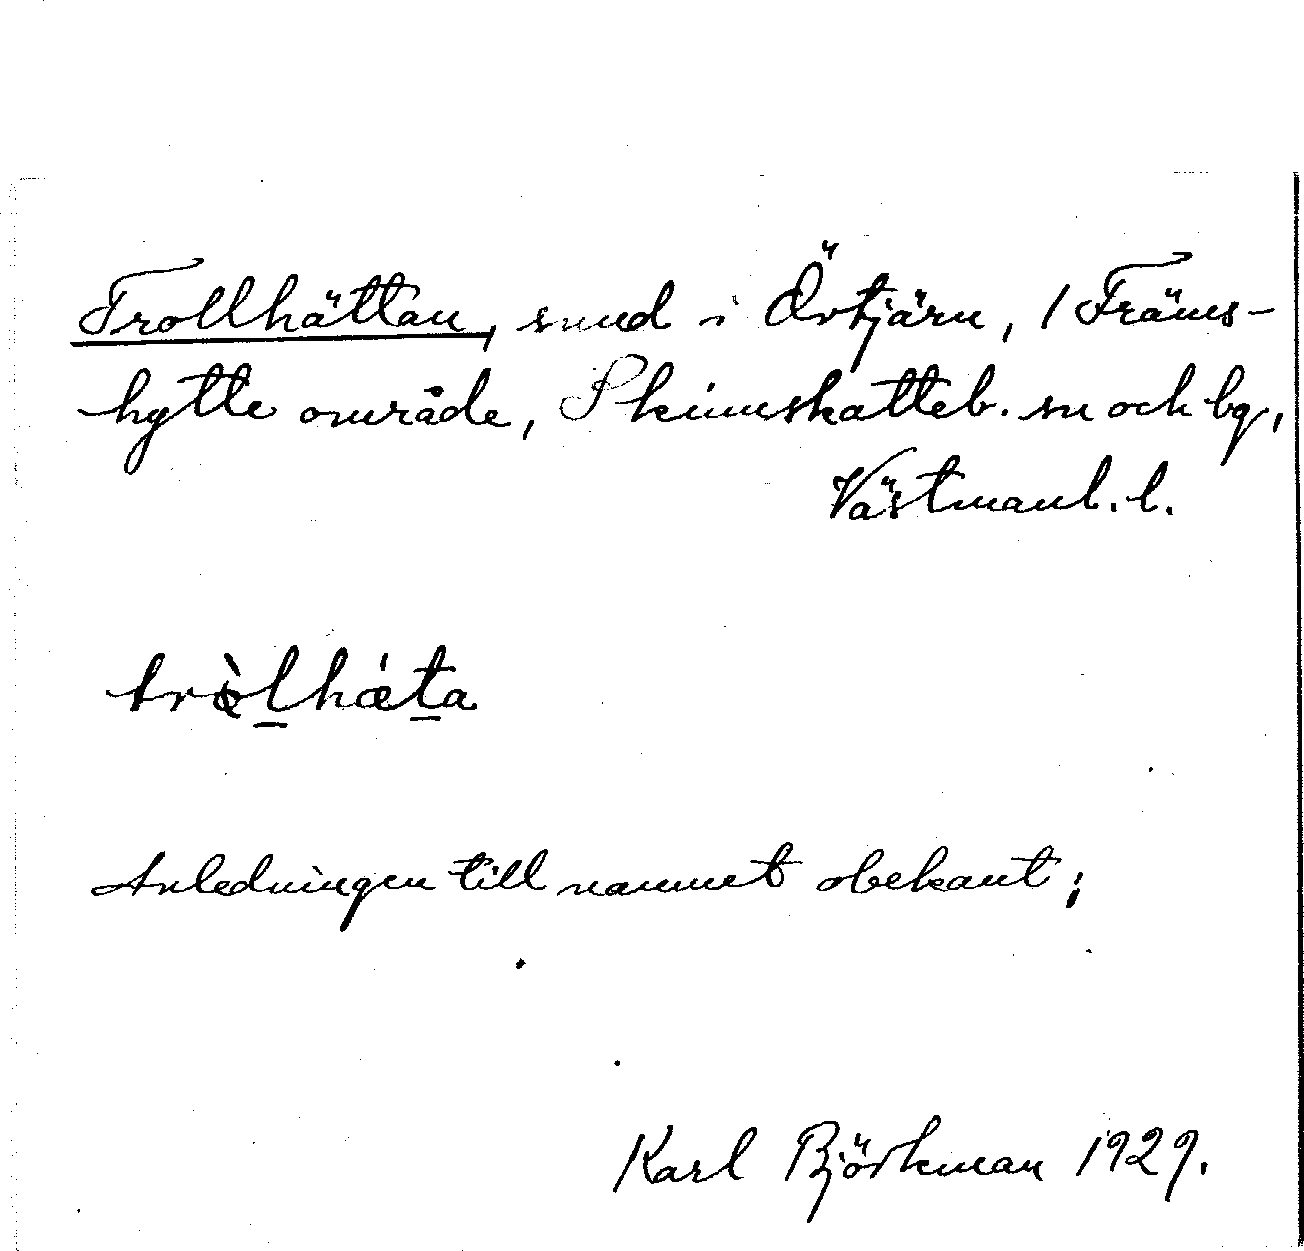 Trollhättan, sund i Övtjärn, / Främs-
hytte område, Skinnskatteb. sn och bg,
Västmanl. l.
trò̀l̲hä́t̲a
Anledningen till namnet obekant;
Karl Björkman 1929.